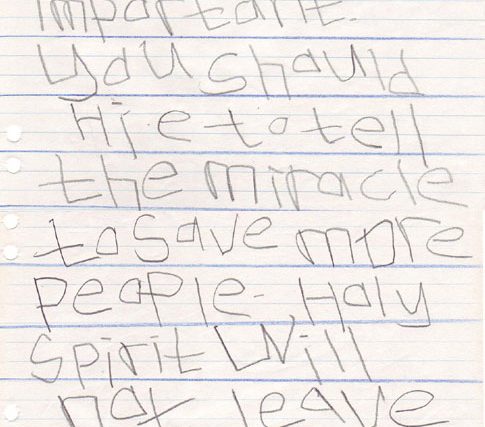 important.
you should
Hie to tell
the miracle
to save more
people. Holy
Spirit Will
not leave